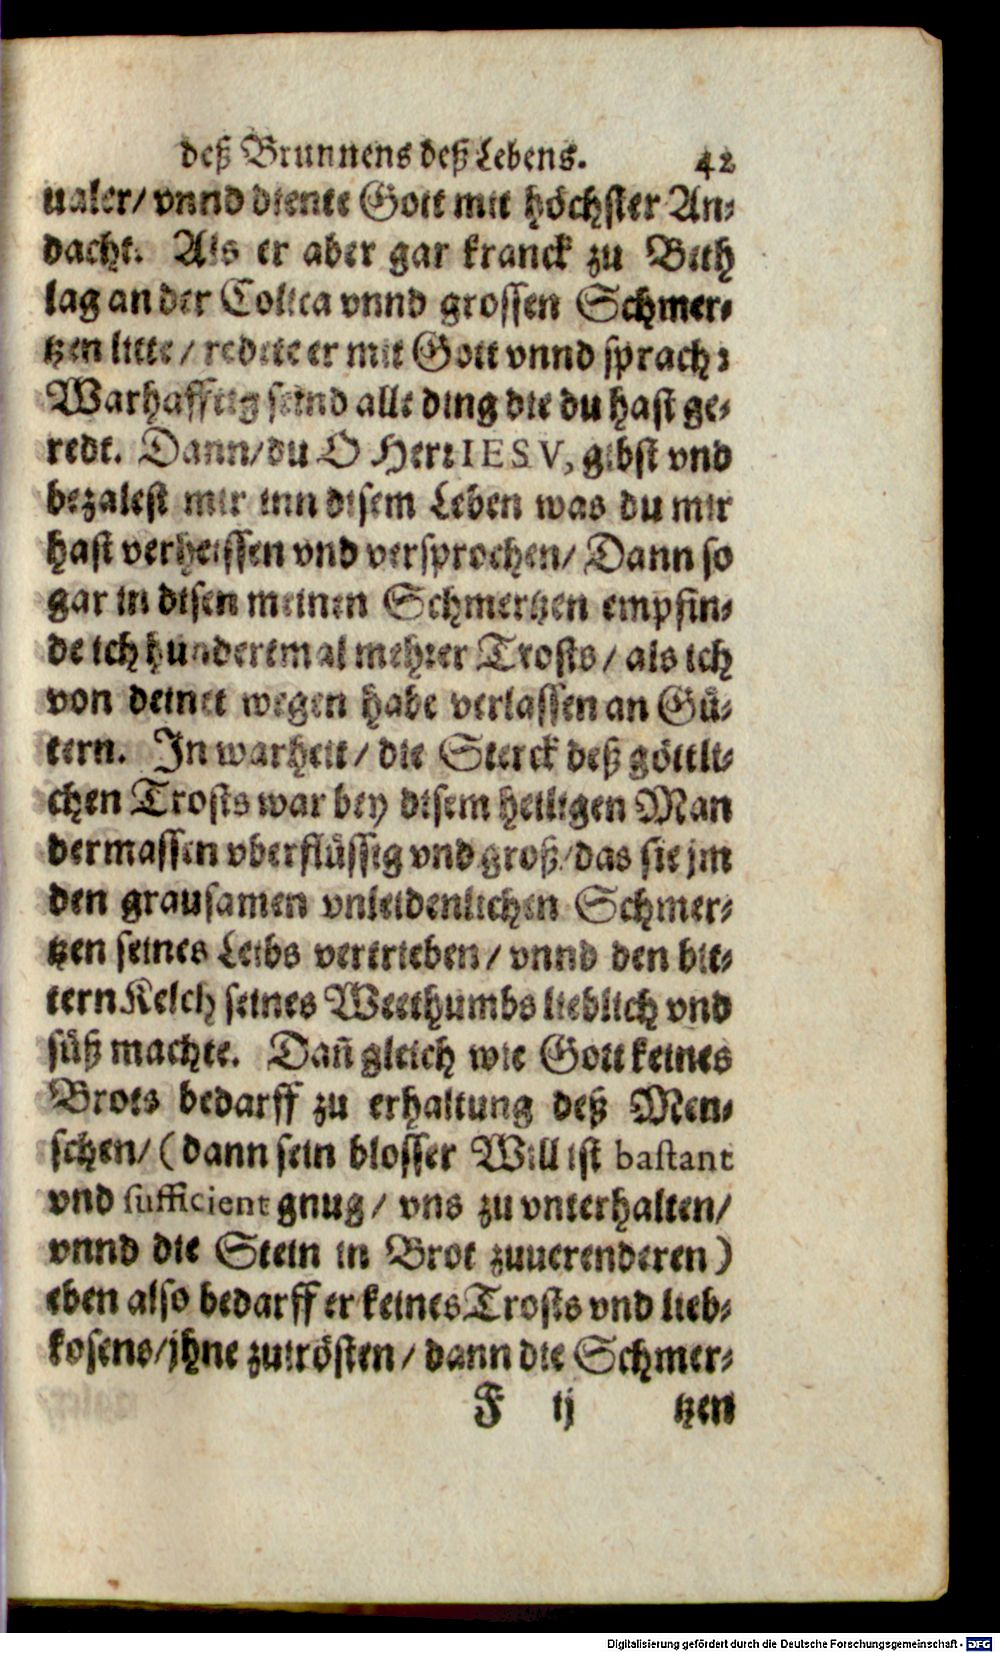 deß Brunnens deß Lebens. 42
ualer/ vnnd diente Gott mit höchster An⸗
dacht. Als er aber gar kranck zu Beth
lag an der Colica vnnd grossen Schmer⸗
tzen litte/ redete er mit Gott vnnd sprach:
Warhafftig seind alle ding die du hast ge⸗
redt. Dann/ du O Herr IESV, gibst vnd
bezalest mir inn disem Leben was du mir
hast verheissen vnd versprochen/ Dann so
gar in disen meinen Schmertzen empfin⸗
de ich hundertmal mehrer Trosts/ als ich
von deinet wegen habe verlassen an Gü⸗
tern. In warheit/ die Sterck deß göttli⸗
chen Trosts war bey disem heiligen Man
dermassen vberflüssig vnd groß/ das sie jm
den grausamen vnleidenlichen Schmer⸗
tzen seines Leibs vertrieben/ vnnd den bit⸗
tern Kelch seines Weethumbs lieblich vnd
süß machte. Dañ gleich wie Gott keines
Brots bedarff zu erhaltung deß Men⸗
schen/ (dann sein blosser Will ist bastant
vnd sufficient gnug/ vns zu vnterhalten/
vnnd die Stein in Brot zuuerenderen)
eben also bedarff er keines Trosts vnd lieb⸗
kosens/ jhne zutrösten/ dann die Schmer⸗
F ij tzen
Digitalisierung gefördert durch die Deutsche Forschungsgemeinschaft - DFG